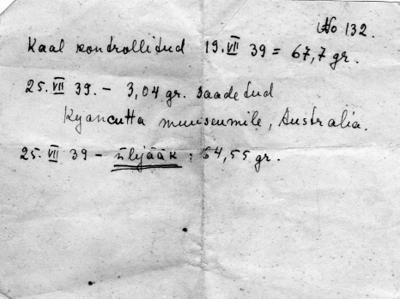 No 132.
Kaal kontrollitud 19. VII 39 = 67,7 gr.
25. VII 39. - 3,04 gr. saadetud
Kyancutta muuseumile, Australia.
25. VII 39 - ülejääk : 64,55 gr.